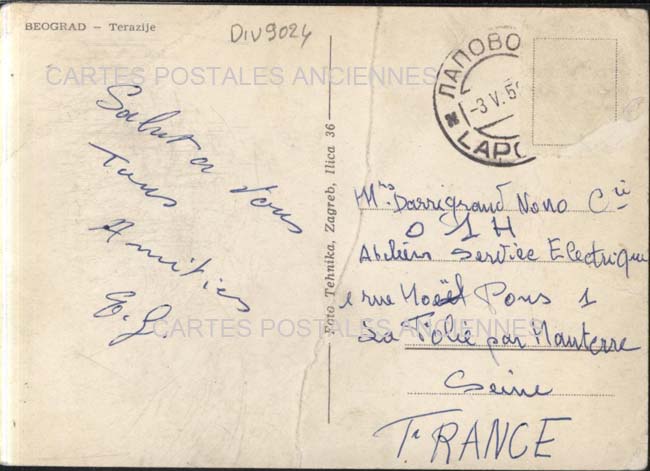 BEOGRAD – Terazije
DIV9024
CARTES POSTALES ANCIENNES
Salut a vous
Tous
Amities
G. J.
Foto Tehnika, Zagreb, Ilica 36
ЛАПОВО
-3 V. 5
LAPO
Mrs Darrigrand Nono Cie
O 1 H
Ateliers Service Electrique
rue Noël Pons 1
La Folie par Nanterre
Seine
FRANCE
CARTES POSTALES ANCIENNES